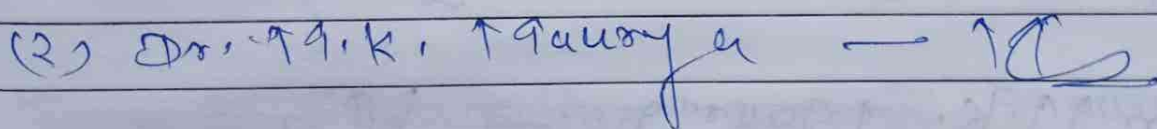 (2) Dr. M.K. Maurya —